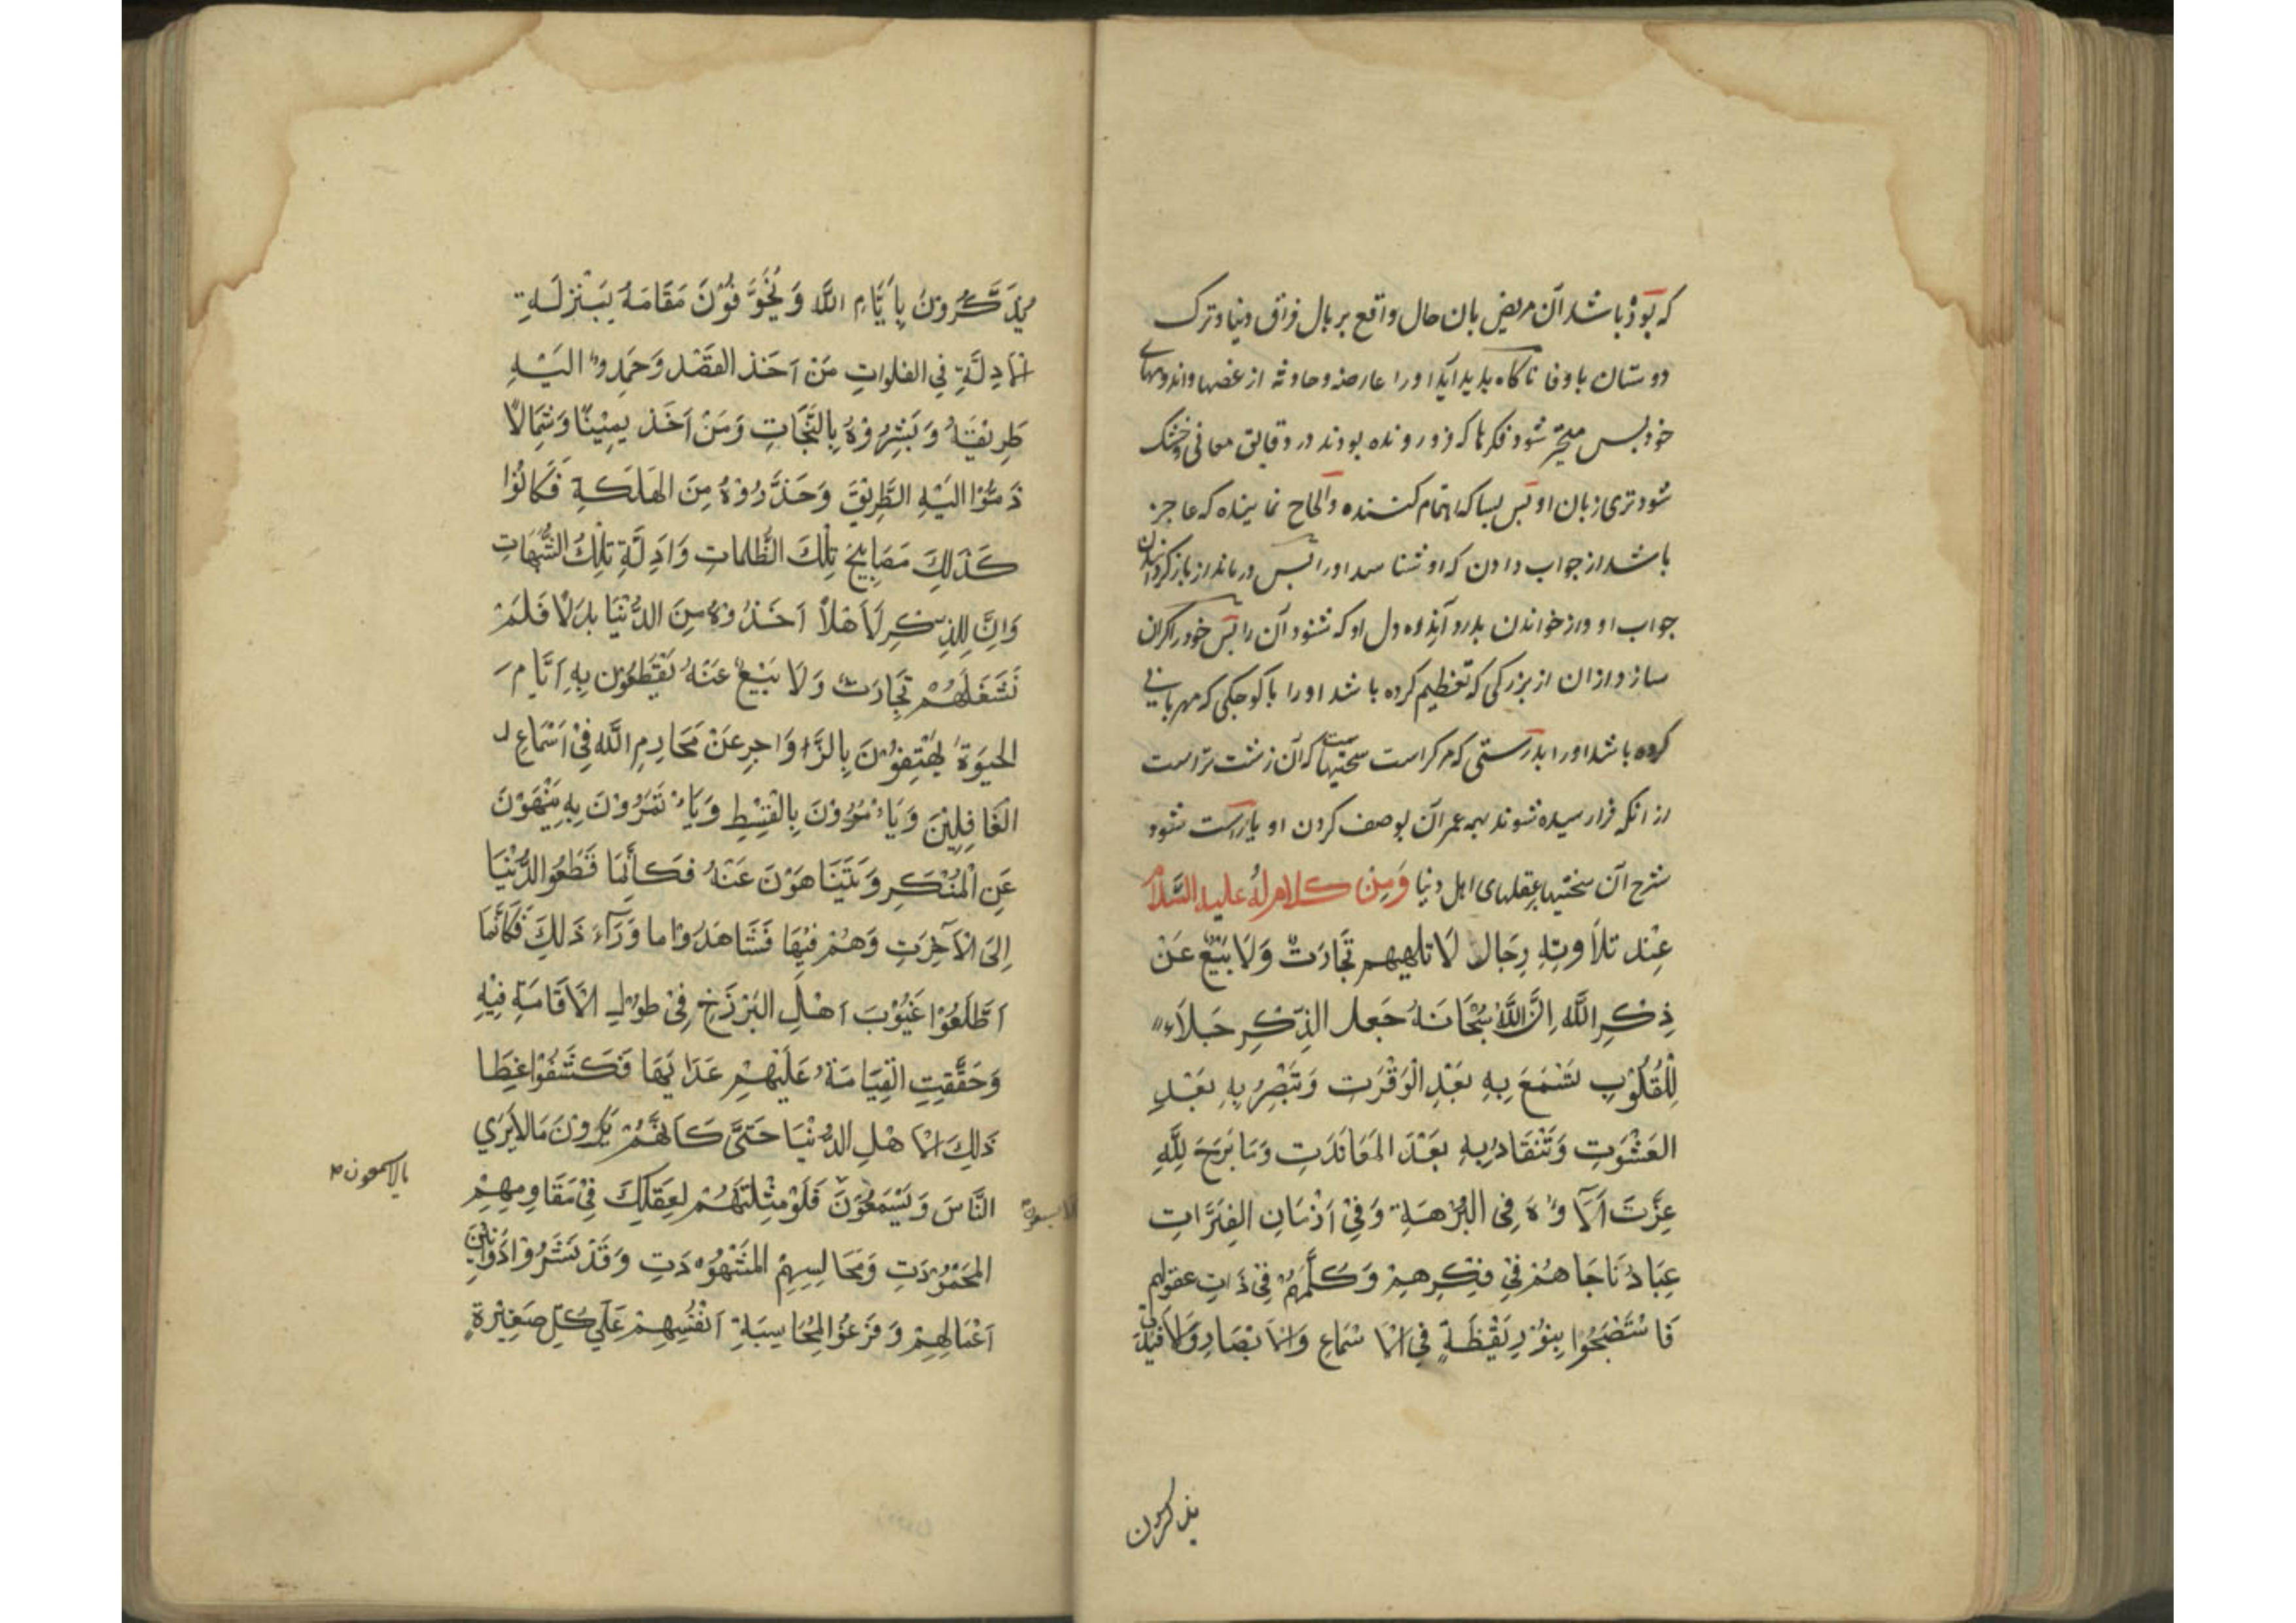 که بود باشد آن مریض بان حال واقع بر بال فراق دنیا و ترک
دوستان با وفا ناکاه بدید آید او را عارضه و حادثه از غصها و اندوههای
خود بس متحیر شود فکرها که فرو رونده بودند در دقایق معانی و خشک
شود تری زبان او بس بسا که اهتمام کننده و الحاح نماینده که عاجز
باشد از جواب دادن که او شناسد او را بس درماند از باز گردانیدن
جواب او و از خواندن بدرد آینده دل او که شنود آن را بس خود را کران
سازد ازان از بزرکی که تعظیم کرده باشد او را با کوچکی که مهربانی
کرده باشد او را بدرستی که مرکراست سختیها که آن زشت تراست
از انکه فرا رسیده شوند همه عمر آن بوصف کردن او یا راست شود
شرح آن سختیها بعقلهای اهل دنیا وَمِن كلام لهُ عليه السَّلام
عِنْد تلاَوتِهِ رِجَال لَا تلهيهم تِجَارَتٌ وَلَا بَيْعٌ عَنْ
ذِكْرِ اللَّه اِنَّ اللَّهَ سُبْحَانَهُ جَعل الذِّكْرِ جَلَاءً
لِلْقُلُوْبِ تَسْمَعَ بِهِ بَعْدِ الْوَقْرَتِ وَتَبْصِرُ بِهِ بَعْدِ
العَشْوَتِ وَتَنْقَادُ بِهِ بَعْدَ المَعَانَدَتِ وَمَا بَرَحَ لِلَّهِ
عِزَّتَ اَلَآ ؤُهُ فِى البُرْهَةِ وَفِيْ اَزْمَانِ الفِتَرَاتِ
عِبَادٌ نَاجَاهُمْ فِيْ فِكْرِهِمْ وَكَلَّمَهُمْ فِيْ ذَاتِ عقولهم
فَاسْتَصْبَحُوْا بِنُوْرِ يَقْظَةٍ فِى الْاَسْمَاعِ وَالْاَبْصَارِ وَالْاَفْئِدَةِ
يذكرون
يُذَكِّرُوْنَ بِاَيَّامِ اللَّه وَيُخَوِّفُوْنَ مَقَامَهُ بِمَنْزِلَةِ
الْاَدِلَّةِ فِي الفلواتِ مَنْ اَخَذ القَصْد وَحَمِدُوْا اليْهِ
طَرِيْقَهُ وَبَشِّرُوْهُ بِالنَّجَاتِ وَمَنْ اَخَذ يمِيْنًا وَشِمَالًا
ذَمُّوْا اليْهِ الطَّرِيْقَ وَحَذَّرُوْهُ مِنَ الهَلَكَةِ فَكَانُوْا
كَذٰلِكَ مَصَابِيْحَ تِلْكَ الظُّلماتِ وَاَدِلَّةِ تِلْكَ الشُّبُهَاتِ
وَاِنَّ لِلذِكْرِ لَاَهْلاً اَخَذُوْهُ مِنَ الدُّنْيَا بدَلًا فَلَمْ
تَشْغَلْهُمْ تِجَارَتٌ وَلَا بَيْعٌ عَنْهُ يَقْطَعُوْن بِهِ اَيَّامَ
الحيٰوَةِ يَهْتِفُوْنَ بِالزَّوَاجِرِ عَنْ مَحَارِمِ اللَّه فِيْ اَسْمَاعِ
الْغَافِلِيْنَ وَيَاْمُرُوْنَ بِالْقِسْطِ وَيَاْتَمِرُوْنَ بِهِ يَنْهَوْنَ
عَنِ الْمُنْكَرِ وَيَتَنَاهَوْنَ عَنْهُ فَكَأَنَّمَا قَطَعُوْا الدُّنْيَا
اِلَى الْاٰخِرَتِ وَهُمْ فِيْهَا فَشَاهَدُوْا ما وَرَآءَ ذٰلِكَ فَكَأَنَّمَا
اَطَّلَعُوْا غُيُوْبَ اَهْلِ البَرْزَخِ فِيْ طوْلِ الْاَقَامَةِ فِيْهِ
وَحَقَّقَتِ الْقِيَامَةُ عَلَيْهِمْ عَدَاتَهَا فَكَشَفُوْا غِطَا
ذٰلِكَ الْاَهْلِ الدُّنْيَا حَتّىَ كَاَنَّهُمْ يَرَوْنَ مَا لَا يَرَي
النَّاسَ وَيَسْمَعُوْنَ فَلَوْ مثّلتَهُمْ لعَقلِكَ فِيْ مَقَاوِمِهِمْ
ما لا یسمعون
المَحْمُوْدَتِ وَمَجَالِسِهِمْ المَشْهُوْدَتِ وَقَدْ نَشَرُوْا دَوَاوِيْنَ
اَعْمَالِهِمْ وَفَرَغُوْا لِمُحَاسَبَةِ اَنْفُسِهِمْ عَلٰي كُلِّ صَغِيْرَةٍ